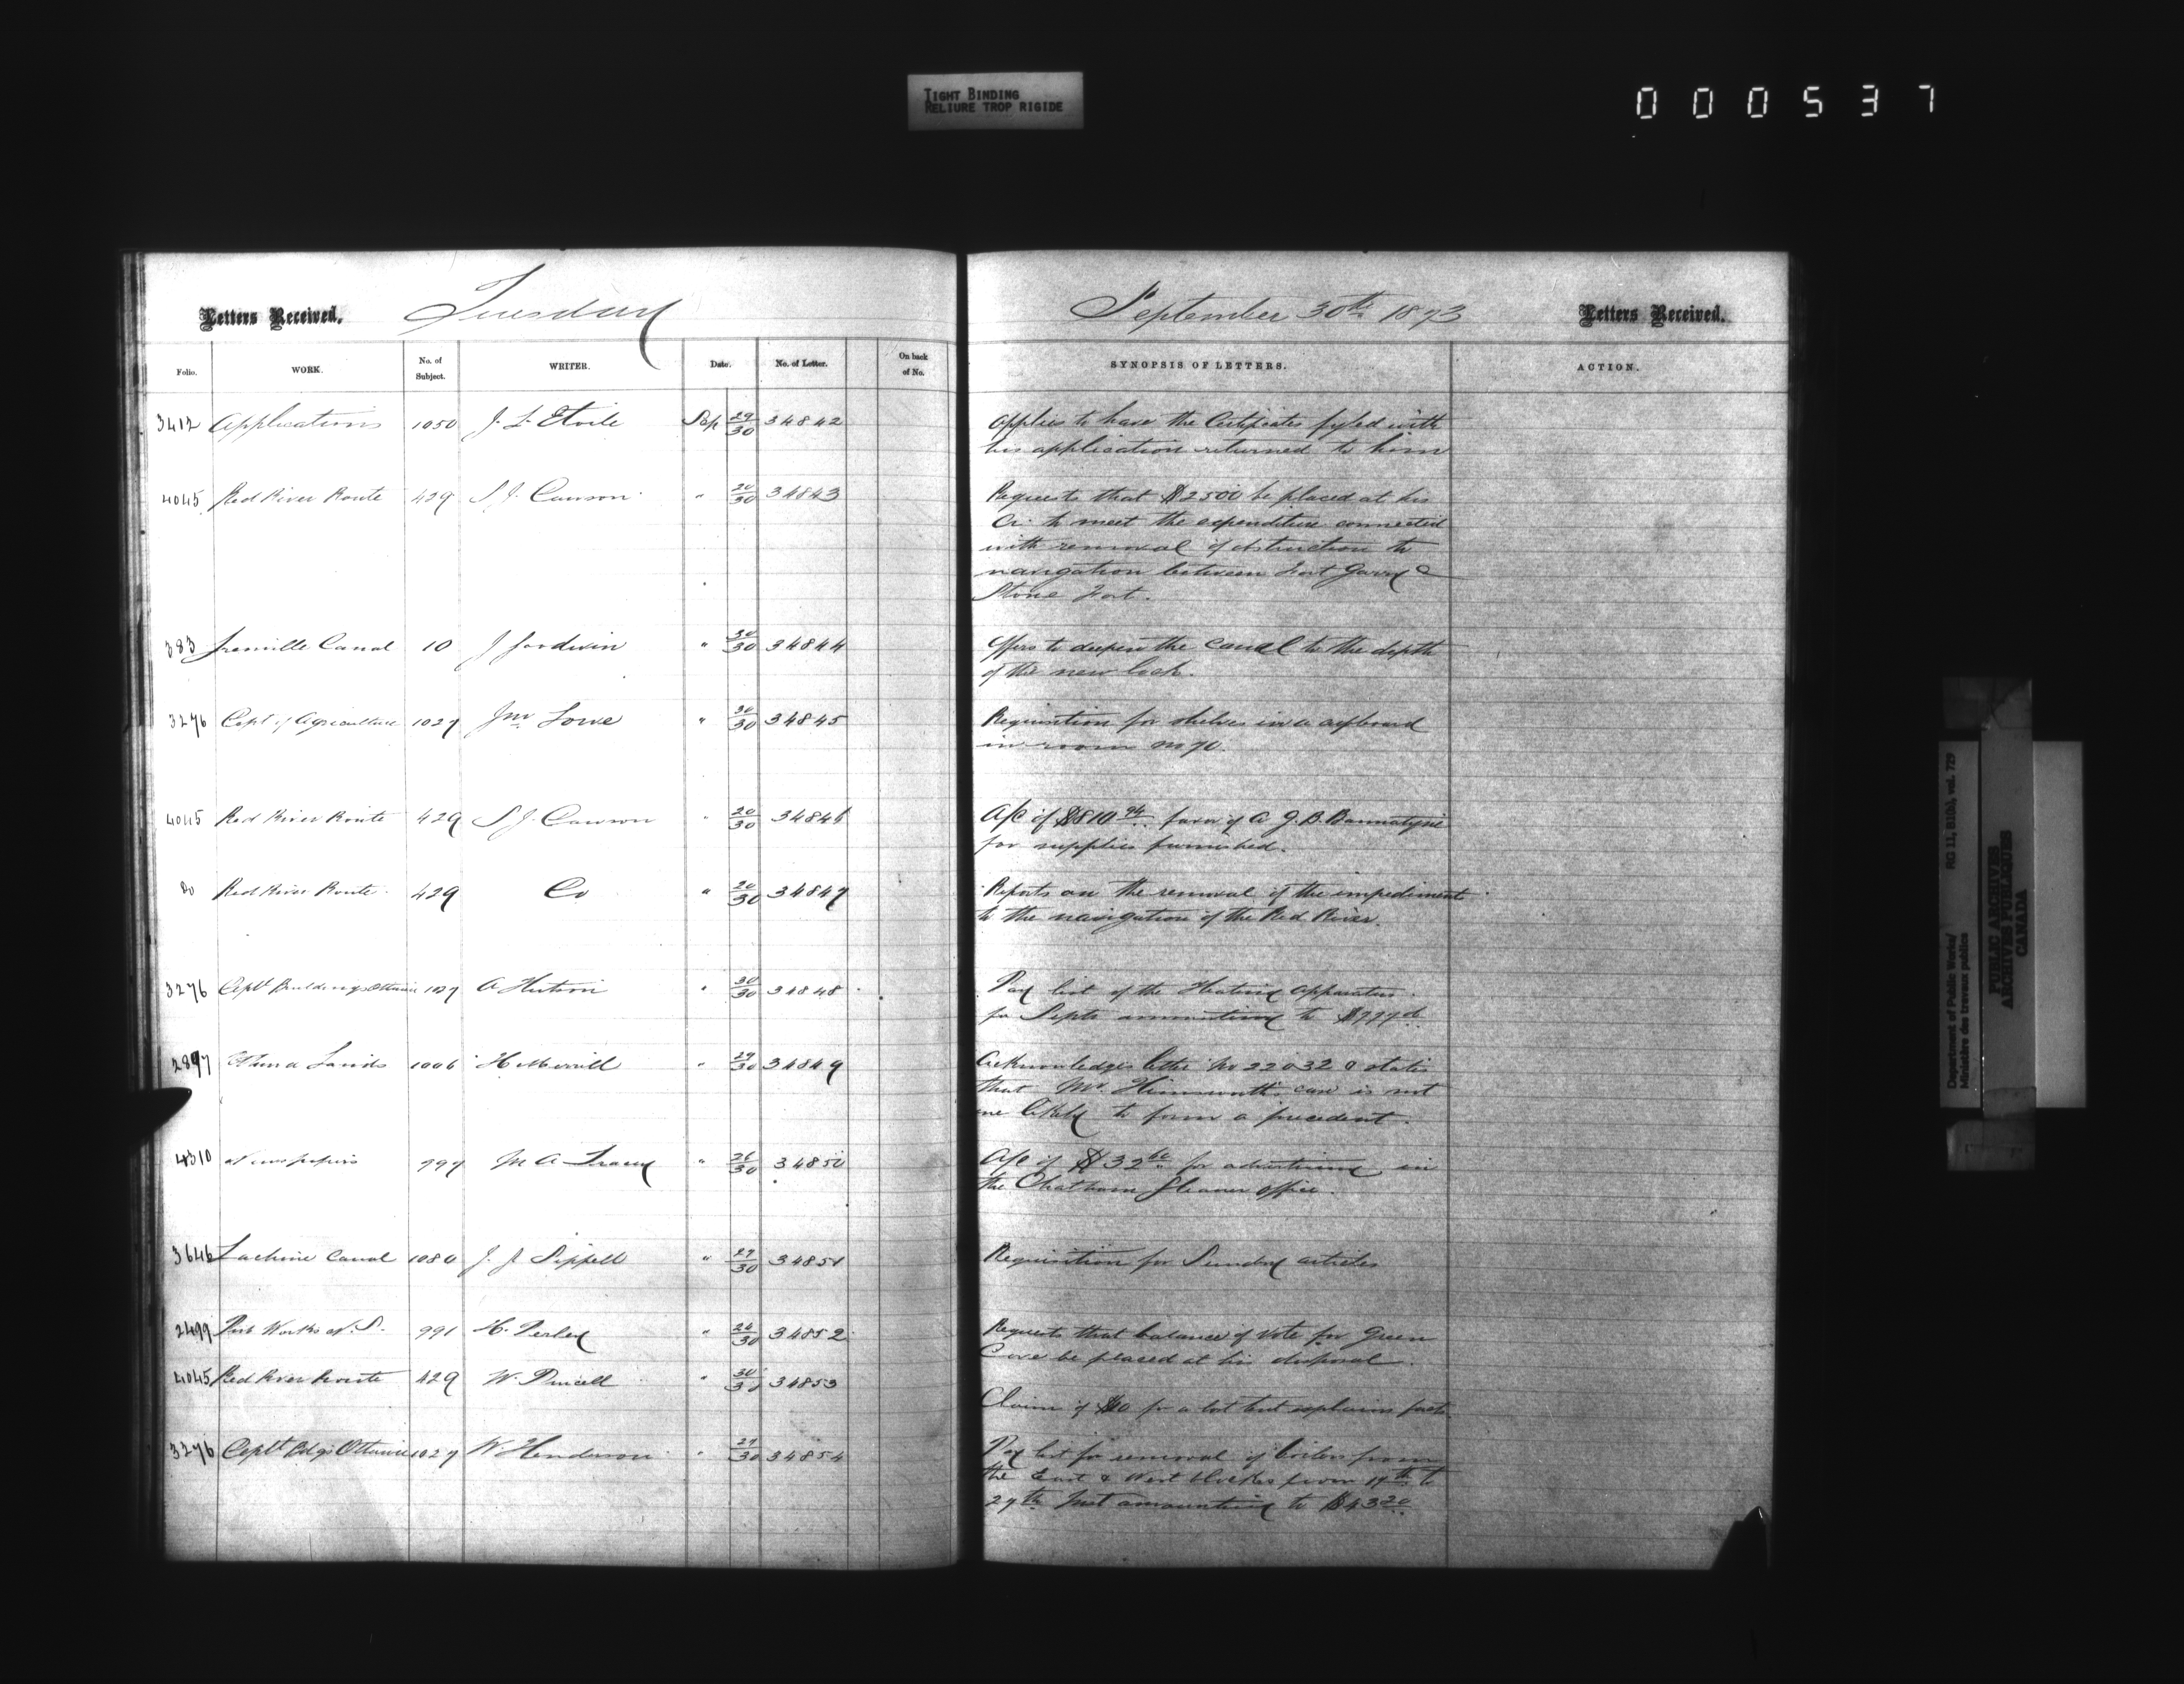 TIGHT BINDING
RELIURE TROP RIGIDE
000537
Letters Received. Tuesday
September 30th 1873 Letters Received.
Folio. WORK. No. of Subject. WRITER. Date. No. of Letter. On back of No. SYNOPSIS OF LETTERS. ACTION.
3412 Applications 1050 J. L. Etoile Sep 29/30 34842 Applies to have the Certificates fyled with
his application returned to him
4045 Red River Route 429 S J. Dawson " 20/30 34843 Requests that $2500 be placed at his
Cr. to meet the expenditure connected
with removal of obstruction to
navigation between Fort Garry &
Stone Fort.
383 Grenville Canal 10 J Goodwin " 30/30 34844 Offers to deepen the Canal to the depth
of the new lock.
3276 Dept of Agriculture 1027 Jno Lowe " 30/30 34845 Requisition for shelves in a cupboard
in room No 70.
4045 Red River Route 429 S J. Dawson " 20/30 34846 A/c of $810 94 favor of A G. B. Bannatyne
for supplies furnished.
Do Red River Route 429 Do " 20/30 34847 Reports on the removal of the impediment
to the navigation of the Red River.
3276 Deptl Buildings Ottawa 1027 A Hutson " 30/30 34848 Pay list of the Heating Apparatus
for Septr amounting to $777
2897 Ottawa Lands 1006 H Merrill " 29/30 34849 Acknowledges letter No 22032 & states
that Mr. Himsworth's case is not
one likely to form a precedent.
4310 Newspapers 999 M A Tracey " 26/30 34850 A/c of $32 60 for advertising in
the Chatham Gleaner office.
3646 Lachine Canal 1080 J. G Sippell " 29/30 34851 Requisition for Sundry articles
2499 Pub Works N. S. 991 H. Perley " 24/30 34852 Requests that balance of Vote for Green
Cove be placed at his disposal.
4045 Red River Route 429 W. Purcell " 30/30 34853
Claim of $10 for a lost but explains facts
3276 Deptl Bdgs Ottawa 1027 W Henderson " 29/30 34854 Pay list for removal of boilers from
the East & West blocks from 19th to
27th Inst amounting to $43 20
Department of Public Works/
Ministère des travaux publics
RG 11, B1(b), vol. 729
PUBLIC ARCHIVES
ARCHIVES PUBLIQUES
CANADA